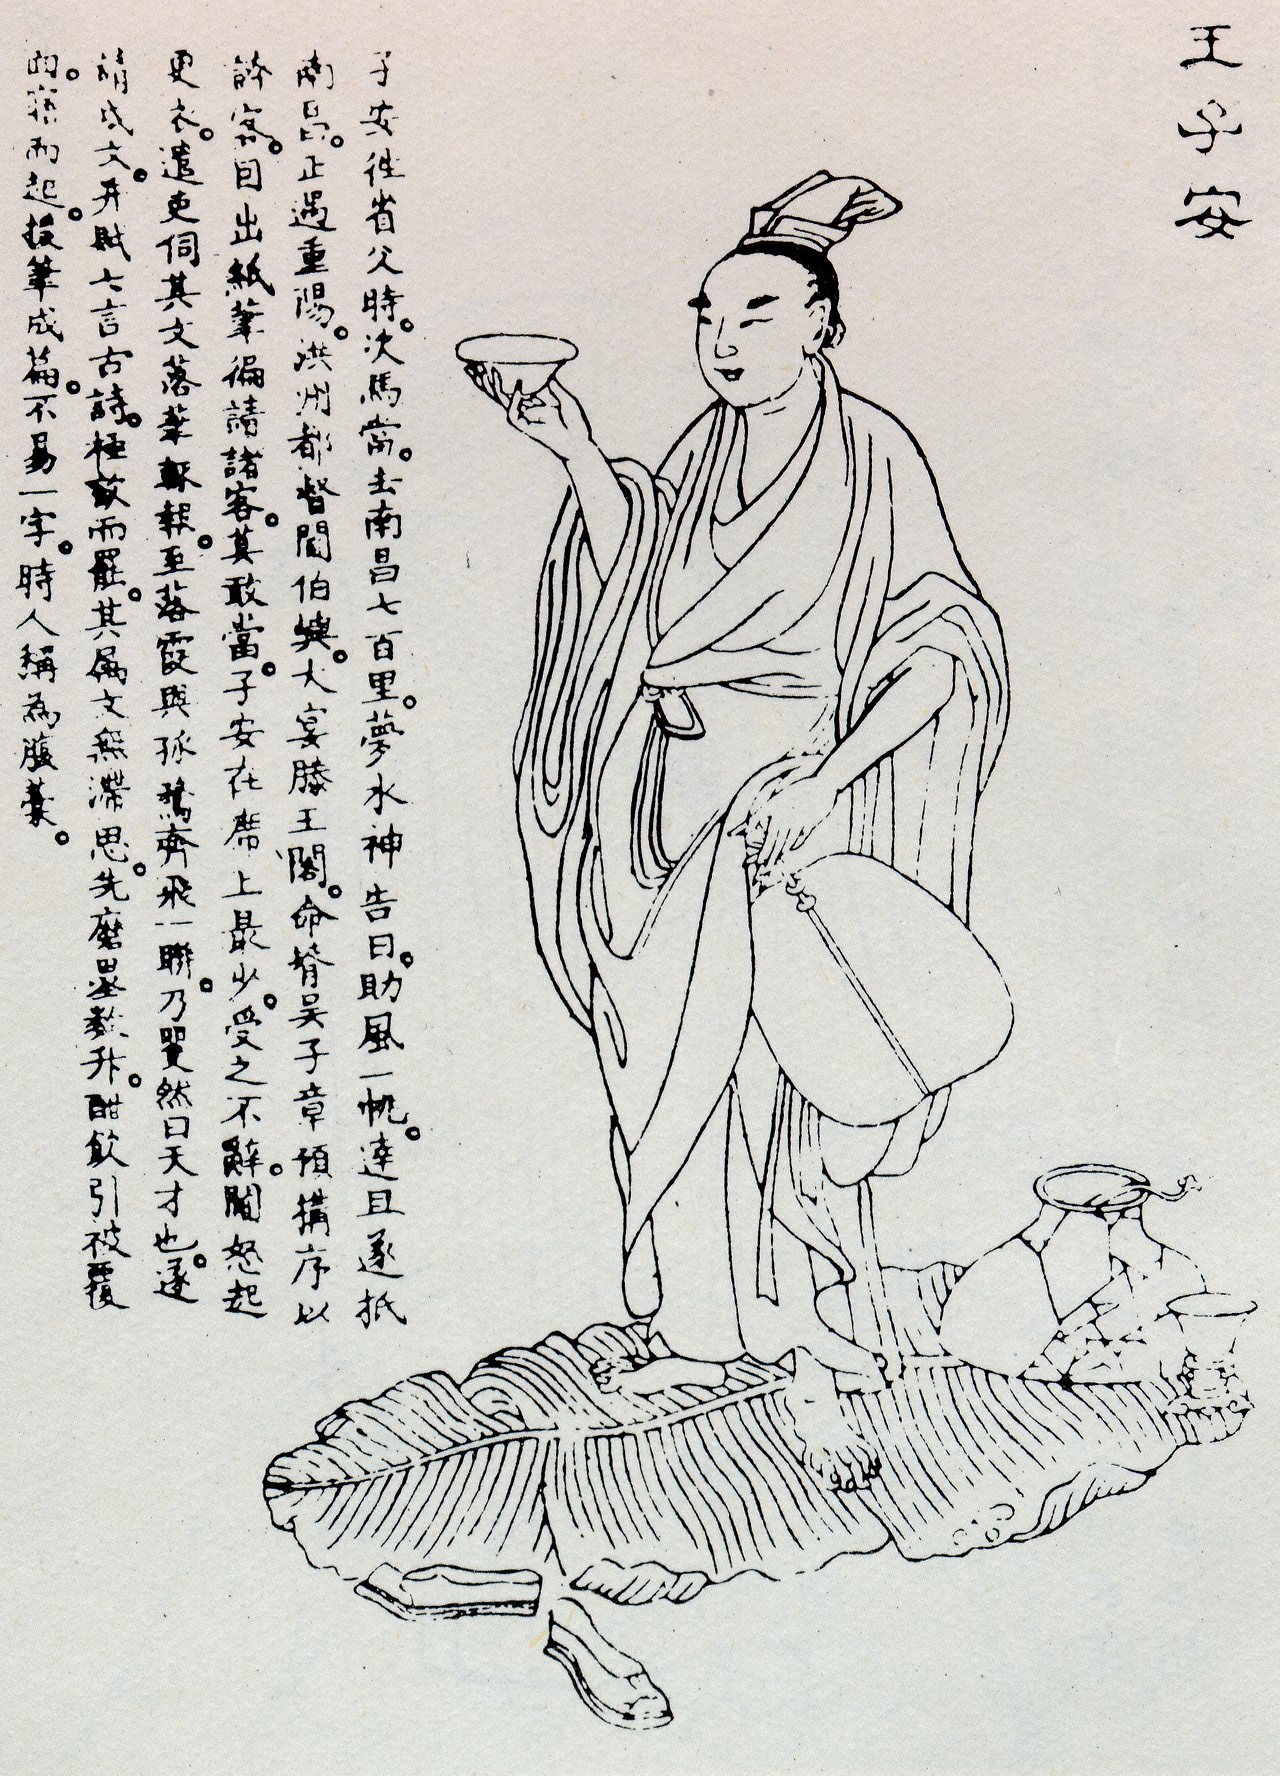 王子安
子安往省父時。次馬當。去南昌七百里。夢水神告曰。助風一帆。達旦遂抵
南昌。正遇重陽。洪州都督閻伯嶼。大宴滕王閣。命壻吳子章預搆序以
誇客。因出紙筆徧請諸客。莫敢當。子安在席上最少。受之不辭。閻怒起
更衣。遣吏伺其文落筆輒報。至落霞與孤鶩齊飛一聯。乃矍然曰天才也。遂
請成文。并賦七言古詩。極歡而罷。其屬文無滯思。先磨墨數升。酣飲引被覆
面。寤而起。援筆成篇。不易一字。時人稱為腹藁。